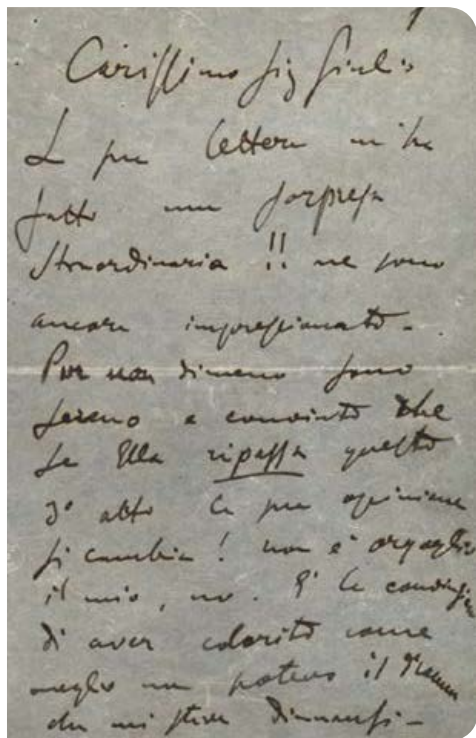 Carissimo Sig Giulio
La sua lettera mi ha
fatto una sorpresa
straordinaria !! ne sono
ancora impressionato –
Pur non dimeno sono
sereno e convinto che
se Ella ripassa questo
3º atto la sua opinione
si cambia ! non è orgoglio
il mio, no. È la convinzione
di aver colorito come
meglio non potevo il dramma
che mi stava dinnanzi –